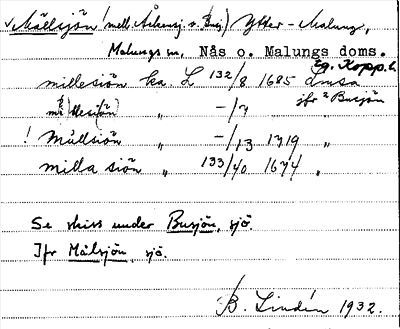 v Mällsjön (mell. Åkersj. o. Busj.) Ytter-Malung,
Malungs sn. Nås o. Malungs doms.
Eg. Kopp. l.
millesiön ka. L 132/8 1685 Lmsa
jfr 2 Busjön
mi(llesiön) " -/7 "
! Mullsiön " -/13 1719 "
milla siön " 133/40 1674 "
Se skiss under Busjön, sjö.
Jfr Målsjön, sjö.
B. Lindén 1932.